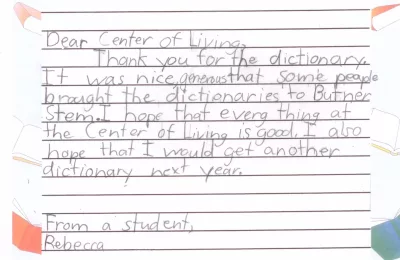 Dear Center of Living,
Thank you for the dictionary.
It was nice, generous that some people
brought the dictionaries to Butner
Stem. I hope that every thing at
the Center of Living is good. I also
hope that I would get another
dictionary next year.
From a student,
Rebecca